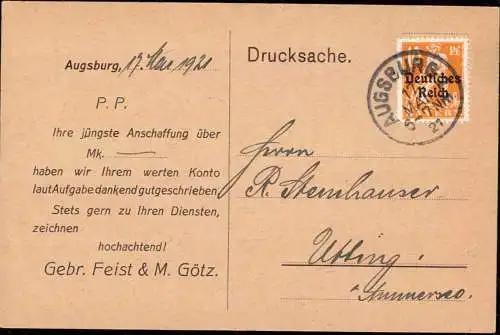 Augsburg, 17. Mai 1921
P. P.
Ihre jüngste Anschaffung über
Mk. ———
haben wir Ihrem werten Konto
laut Aufgabe dankend gutgeschrieben.
Stets gern zu Ihren Diensten,
zeichnen
hochachtend!
Gebr. Feist & M. Götz.
Drucksache.
Deutsches
Reich
AUGSBURG
MAI
21
Herrn
R. Steinhauser
Utting
Ammersee.